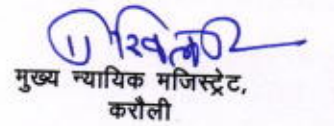 मुख्य न्यायिक मजिस्ट्रेट,
करौली